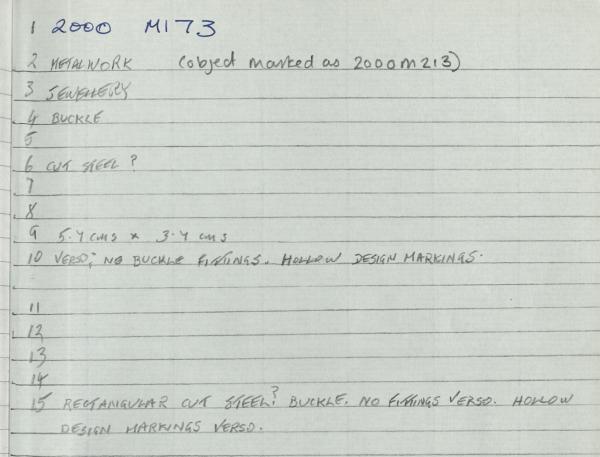 1 2000 M173
2 METALWORK (object marked as 2000M213)
3 JEWELLERY
4 BUCKLE
5
6 CUT STEEL ?
7
8
9 5.4 cms x 3.4 cms
10 VERSO; NO BUCKLE FITTINGS. HOLLOW DESIGN MARKINGS.
11
12
13
14
15 RECTANGULAR CUT STEEL? BUCKLE. NO FITTINGS VERSO. HOLLOW
DESIGN MARKINGS VERSO.